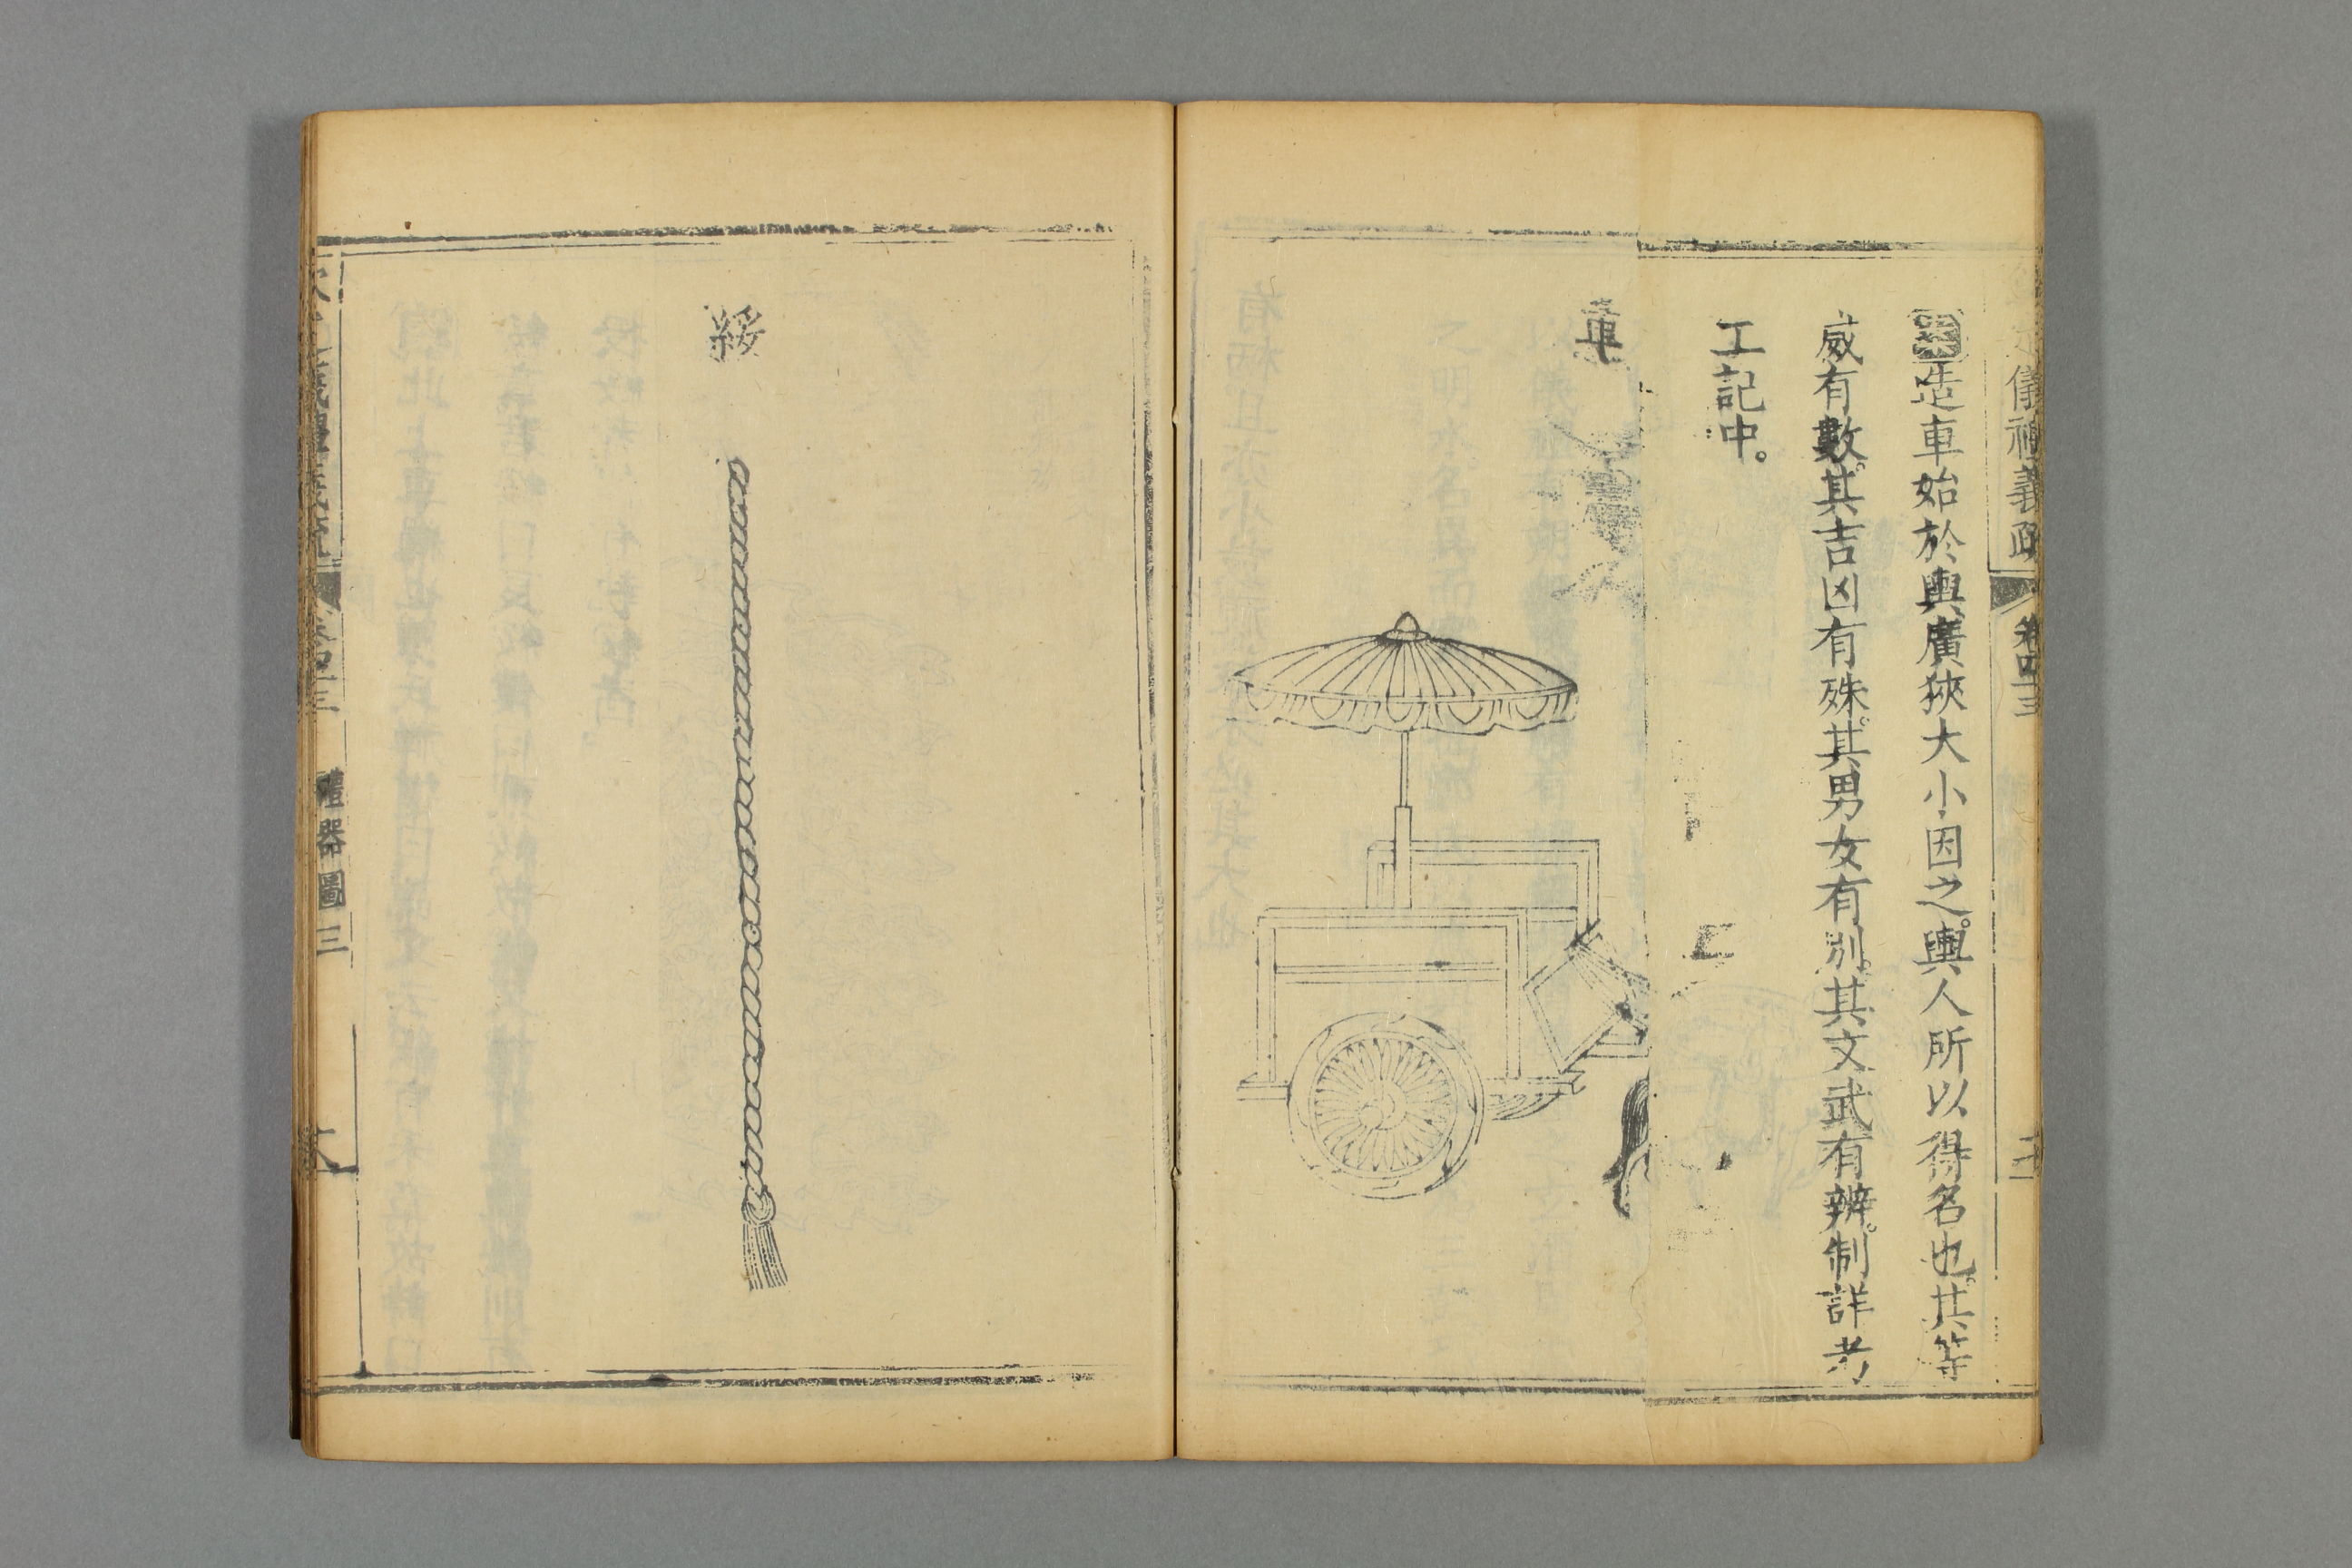 儀禮義疏 卷四十三
造車始於輿廣狹大小因之。輿人所以得名也。其等
威有數。其吉凶有殊。其男女有別。其文武有辨。制詳考
工記中。
車
綏
禮器圖三